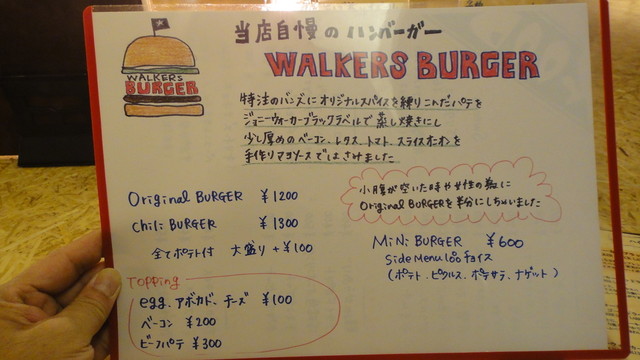 当店自慢のハンバーガー
WALKERS BURGER
WALKERS
BURGER
特注のバンズにオリジナルスパイスを練りこんだパテを
ジョニーウォーカーブラックラベルで蒸し焼きにし
少し厚めのベーコン、レタス、トマト、スライスオニオンを
手作りマヨソースではさみました
Original BURGER ¥1200
Chili BURGER ¥1300
全てポテト付 大盛り+¥100
小腹が空いた時や女性の為に
Original BURGERを半分にしちゃいました
MiNi BURGER ¥600
Side Menu 1つチョイス
(ポテト、ピクルス、ポテサラ、ナゲット)
TOPPiNg
egg、アボカド、チーズ ¥100
ベーコン ¥200
ビーフパテ ¥300